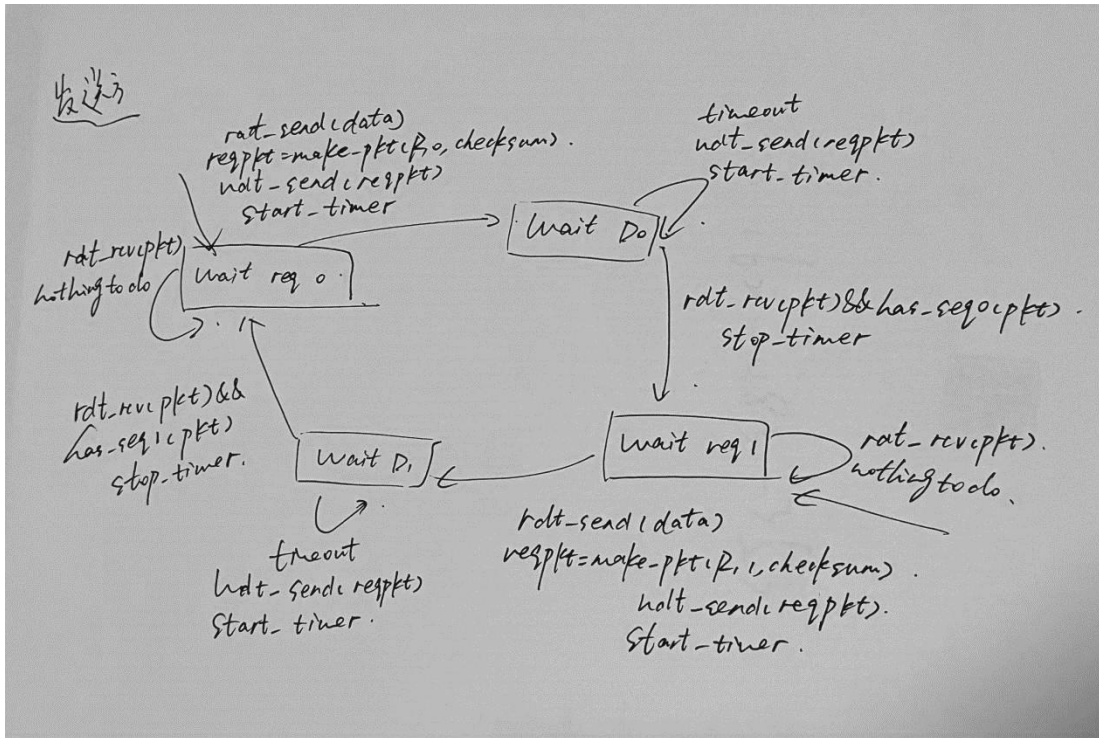 发送方
rdt_send(data)
reqpkt=make-pkt(R,0,checksum).
udt_send(reqpkt)
start_timer
timeout
udt_send(reqpkt)
start_timer.
Wait D0
rdt_rcv(pkt)
nothing to do
Wait req 0.
rdt_rcv(pkt)&&has_seq0(pkt).
stop_timer
rdt_rcv(pkt)&&
has_seq1(pkt)
stop_timer.
Wait D1
Wait req1
rdt_rcv(pkt).
nothing to do.
timeout
udt_send(reqpkt)
start_timer.
rdt_send(data)
reqpkt=make-pkt(R,1,checksum).
udt_send(reqpkt).
start-timer.